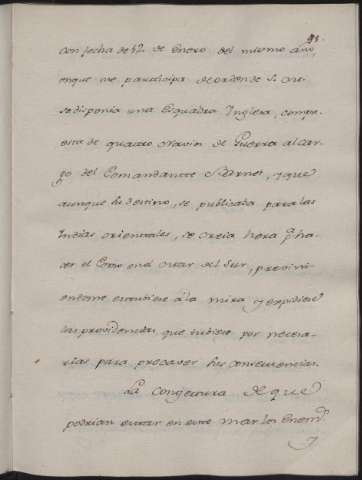 93.
con fecha de 12 de Enero del mismo año,
en que me participa de orden de S. M.
se disponia una Esquadra Inglesa, compu-
esta de quatro Navios de Guerra al car-
go del Comandante Barnet, y que
aunque su destino, se publicaba para las
Indias orientales, se creía hera pa. ha-
cer el Corso en el mar del Sur, previni-
endome estubiese à la mira, y expidiese
las providencias, que tubiese por necesa-
rias para precaver sus consecuencias.
La Congetura de que
podrian entrar en este mar los Enemos.